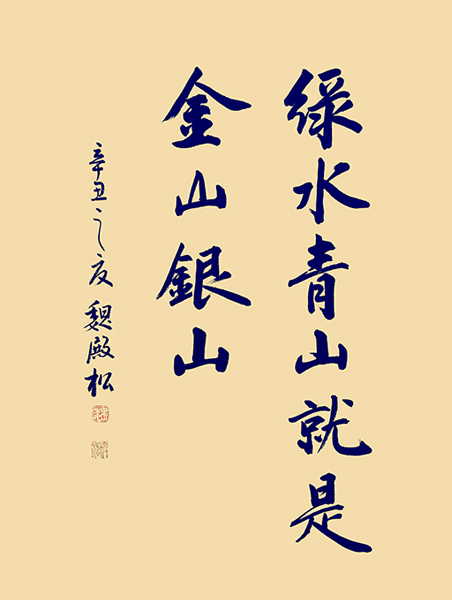 綠水青山就是
金山銀山
辛丑之夏魏殿松